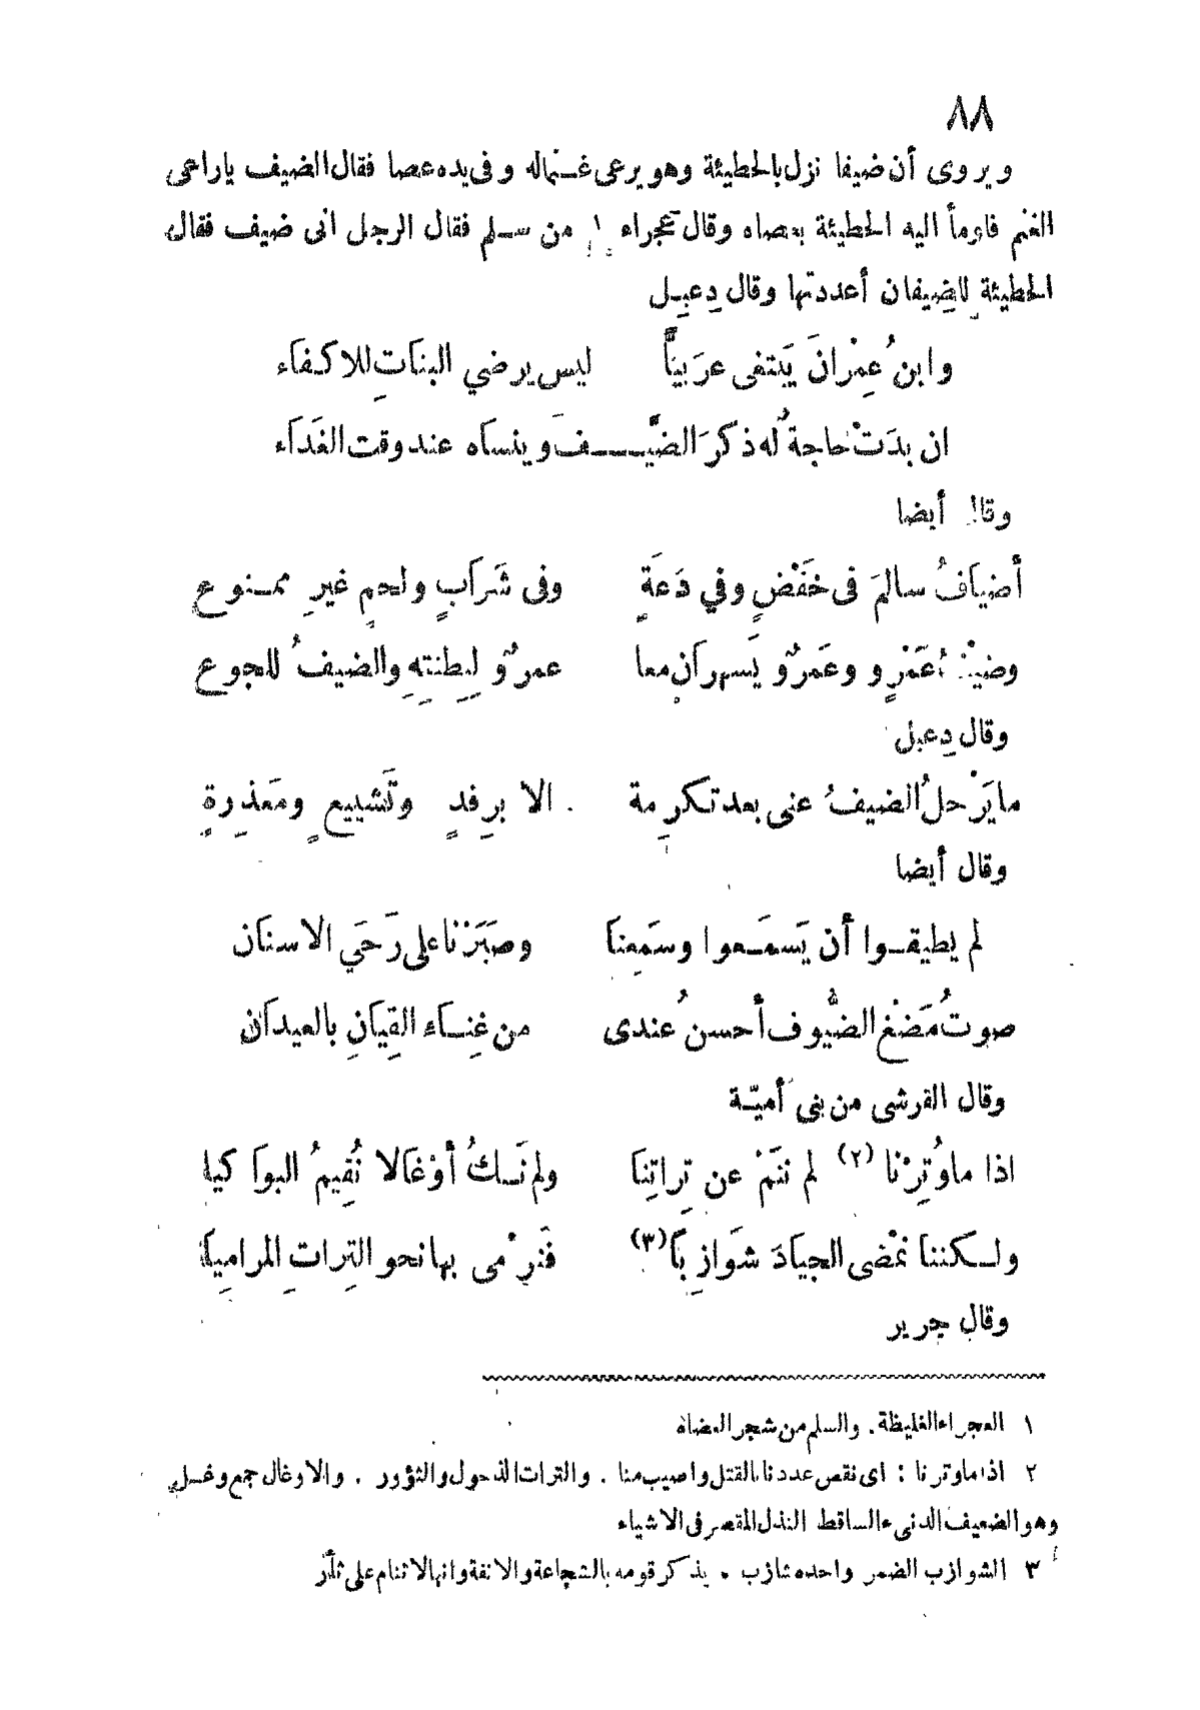 ٨٨
ويروى أن ضيفا نزل بالحطيئة وهو يرعى غنما له وفى يده عصا فقال الضيف ياراعى
الغنم فاومأ اليه الحطيئة بعصاه وقال عجراء ١ من سلم فقال الرجل انى ضيف فقال
الحطيئة لِلضِيفان أعددتها وقال دِعبِل
وابنُ عِمْرانَ يَبتغى عرَبيَّا ليس يرضي البنَاتِ للاكفَاء
ان بدَتْ حاجةٌ له ذكرَ الضَّيْف وينسَاه عند وقت الغَدَاء
وقال أيضا
أضيَافُ سالمَ فى خَفَضٍ وفي دَعَةٍ وفى شَرَابٍ ولحمٍ غيرِ ممنوع
وضيفُ عَمْرٍو وعَمرٌو يَسهرانِ معا عمرٌو لِبِطنتِهِ والضيفُ للجوع
وقال دِعبل
ما يَرْحلُ الضيفُ عنى بعد تكرِمة الا برِفدٍ وتَشييعٍ ومَعذِرةٍ
وقال أيضا
لم يطيقوا أن يَسمَعوا وسَمِعنَا وصَبَرْنا على رَحَي الاسنَان
صوتُ مَضْغِ الضُّيوف أحسنُ عندى من غِنَاء القِيَانِ بالعيدَان
وقال القرشى من بنى أميّة
اذا ماوُتِرْنا (٢) لم ننَمْ عن تِراتِنَا ولم نَكُ أوْغَالا نُقِيمُ البوَاكيا
ولكننا نمْضى الجيَادَ شوَازِبًا (٣) فَنرْمى بها نحو التِراتِ المرامِيَا
وقال جرير
١ العجراء الغليظة. والسلم من شجر العضاه
٢ اذا ماوترنا : اى نقص عددنا بالقتل واصيب منا . والترات الذحول والثؤور . والاوغال جمع وغل
وهو الضعيف الدنىء الساقط النذل المقصر فى الاشياء
٣ الشوازب الضمر واحده شازب . يذكر قومه بالشجاعة والانفة وانها لا تنام على ثأر